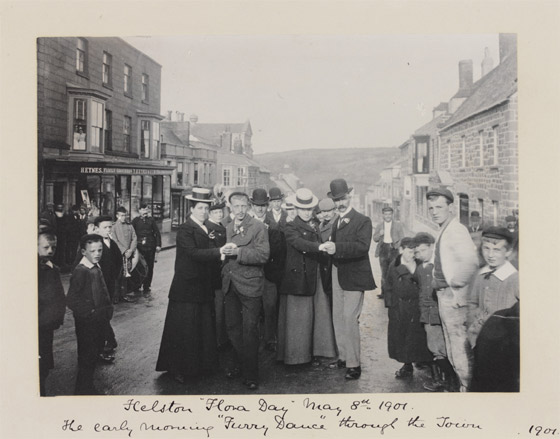 HEYNES. FAMILY
Helston "Flora Day" May 8th 1901.
The early morning "Furry Dance" through the Town
1901.